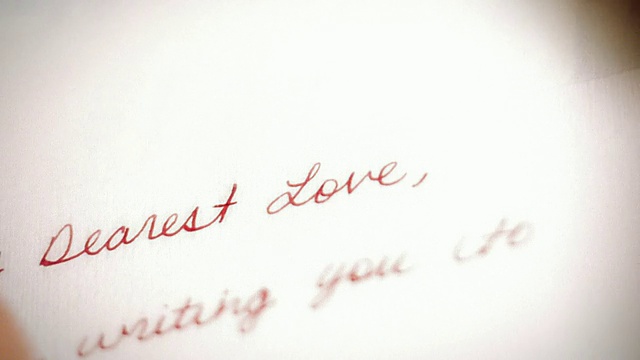 Dearest Love,
writing you to